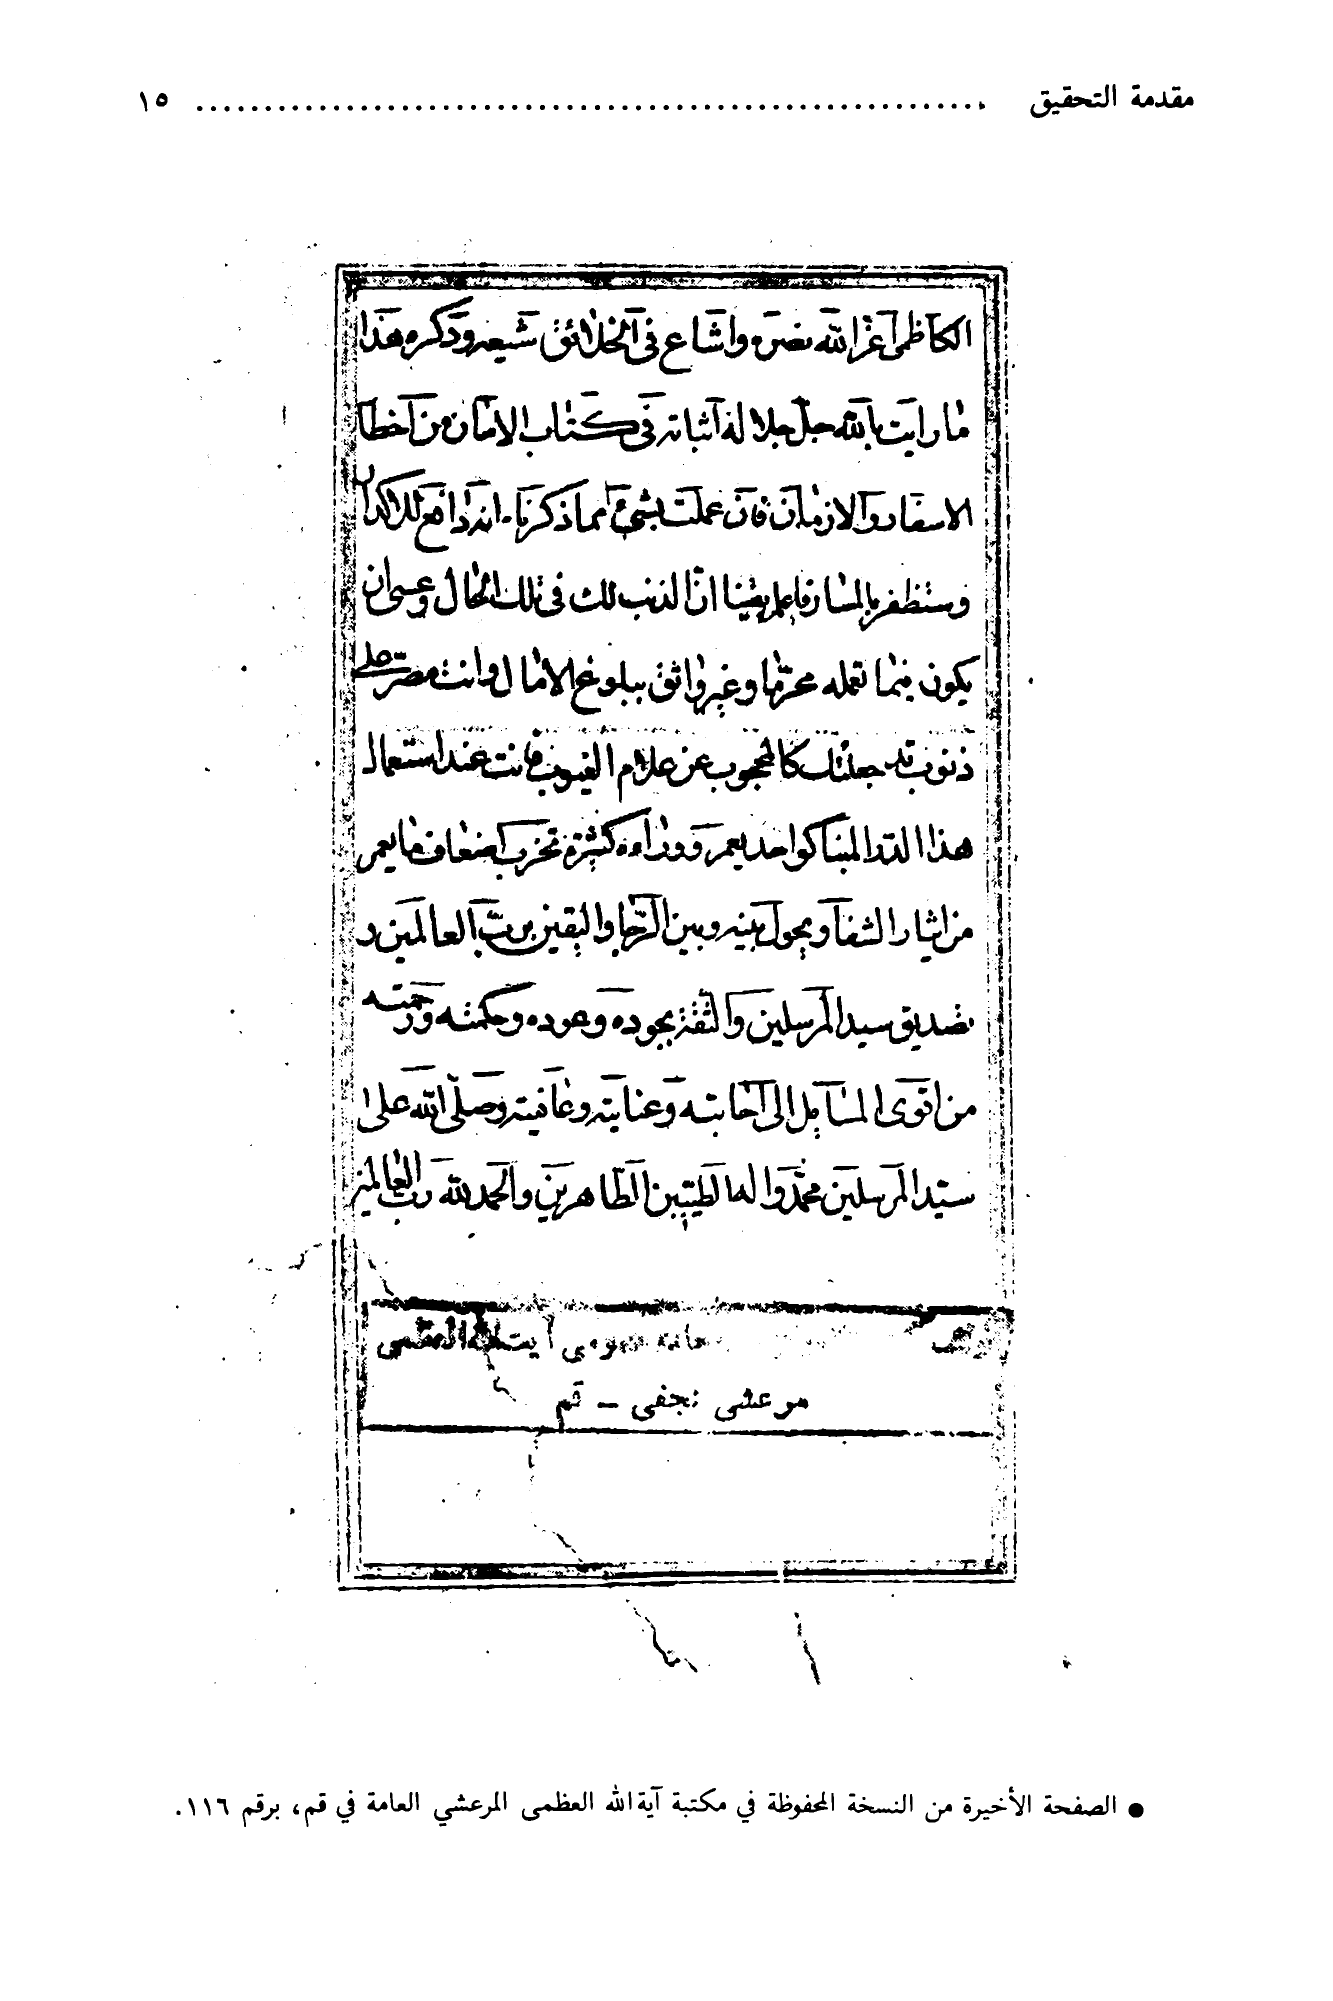 مقدمة التحقيق ........................................................ ١٥
الكاظمي اعز الله نصره واشاع في الخلائق شيعه وذكره هذا
ما رايت بالله جل جلاله اثباته في كتاب الامان من اخطار
الاسفار والازمان فان عملت بشئ مما ذكرنا انه دافع للاكدار
وستظفر بالمسار فاعلم يقينا ان الذنب لك في تلك الحال وعسى ان
يكون فيما تعمله محربا وغير واثق ببلوغ الامال وانت مصر على
ذنوب قد جعلتك كالمحجوب عن علام الغيوب فانت عند استعمال
هذا الدواء كواحد يعمر ووراءه كثيرة تخرب اضعاف ما يعمر
من ايثار الشفا ويحول بينه وبين الرجا واليقين برب العالمين و
تصديق سيد المرسلين والثقة بجوده وعوده وحكمته ورحمته
من اقوى المسايل الى اجابته وعنايته وعافيته وصلى الله على
سيد المرسلين محمد واله الطيبين الطاهرين والحمد لله رب العالمين
عمومى آيت الله العظمى
مرعشى نجفى – قم
● الصفحة الأخيرة من النسخة المحفوظة في مكتبة آية الله العظمى المرعشي العامة في قم، برقم ١١٦.